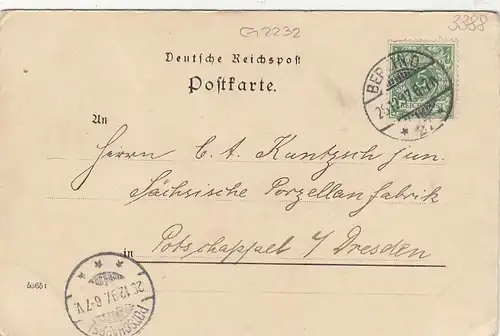 G 2232
3388
Deutsche Reichspost
Postkarte.
An
Herrn C. T. Kuntzsch jun.
Sächsische Porzellanfabrik
in Potschappel b/ Dresden
BERLIN O.
25.12.97. 6-7
* 27 *
REICHSPOST
POTSCHAPPEL
25.12.97. 6-7V
b365t